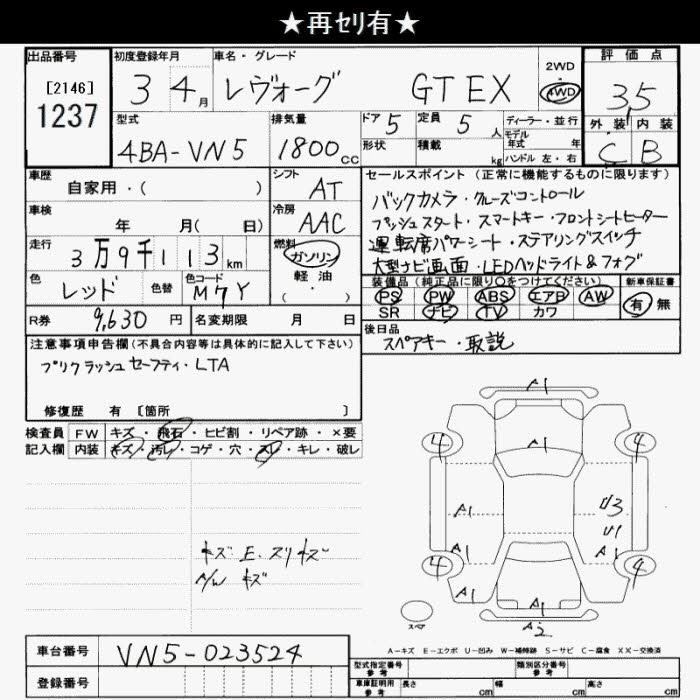 ★再セリ有★
出品番号 初度登録年月 車名・グレード 2WD 評価点
[2146] 3 4月 レヴォーグ GT EX ・ 3,5
1237 4WD 外装 内装
型式 排気量 ドア 5 定員 5人 ディーラー・並行 C B
4BA-VN5 1800cc 形状 積載 kg モデル年式 年式
ハンドル 左・右
車歴 シフト セールスポイント(正常に機能するものに限ります)
自家用・( ) AT バックカメラ・クルーズコントロール
車検 冷房 プッシュスタート・スマートキー・フロントシートヒーター
年 月( 日) AAC 運転席パワーシート・ステアリングスイッチ
走行 燃料 大型ナビ画面・LEDヘッドライト&フォグ
3万9千113km ガソリン
色 色替 色コード 軽油 装備品(純正品に限り〇をつけてください) 新車保証書
レッド M7Y ( ・ ) PS PW ABS エアB AW 有 無
SR ナビ TV カワ
R券 9,630円 名変期限 月 日 後日品
スペアキー・取説
注意事項申告欄(不具合内容等は具体的に記入して下さい)
プリクラッシュセーフティ・LTA
修復歴 有 [箇所 ]
検査員 FW キズ・飛石・ヒビ割・リペア跡・×要
記入欄 内装 キズ・汚レ・コゲ・穴・スレ・キレ・破レ
A1
4 A1 4
A1 U3
U1
A1 A1
4 4
A1
A1
A2
スペア
キズ E. スリキズ
A/W キズ
A-キズ E-エクボ U-凹み W-補修跡 S-サビ C-腐食 XX-交換済
車台番号 VN5-023524
型式指定番号 参考 類別区分番号 参考
登録番号 車庫証明用 参考 長さ cm 幅 cm 高さ cm